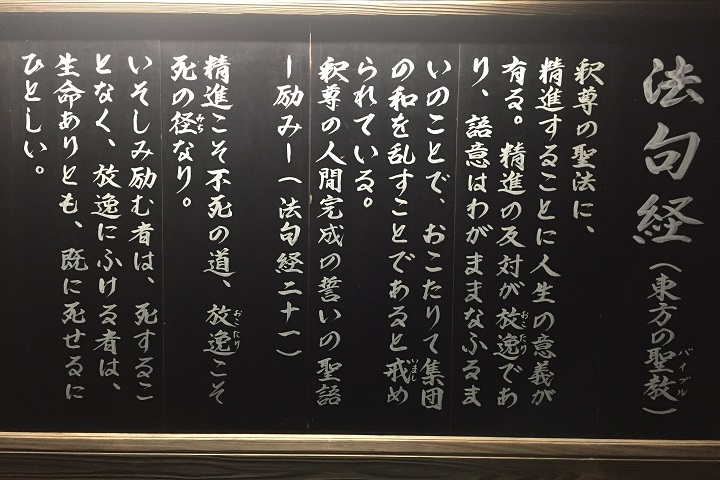 法句経（東方の聖教バイブル）
釈尊の聖法に、
精進することに人生の意義が
有る。精進の反対が放逸おこたりであ
り、語意はわがままなふるま
いのことで、おこたりて集団
の和を乱すことであると戒いまし め
られている。
釈尊の人間完成の誓いの聖語
ー励みー（法句経二十一）
精進こそ不死の道、放逸おこたりこそ
死の径みちなり。
いそしみ励む者は、死するこ
となく、放逸にふける者は、
生命ありとも、既に死せるに
ひとしい。